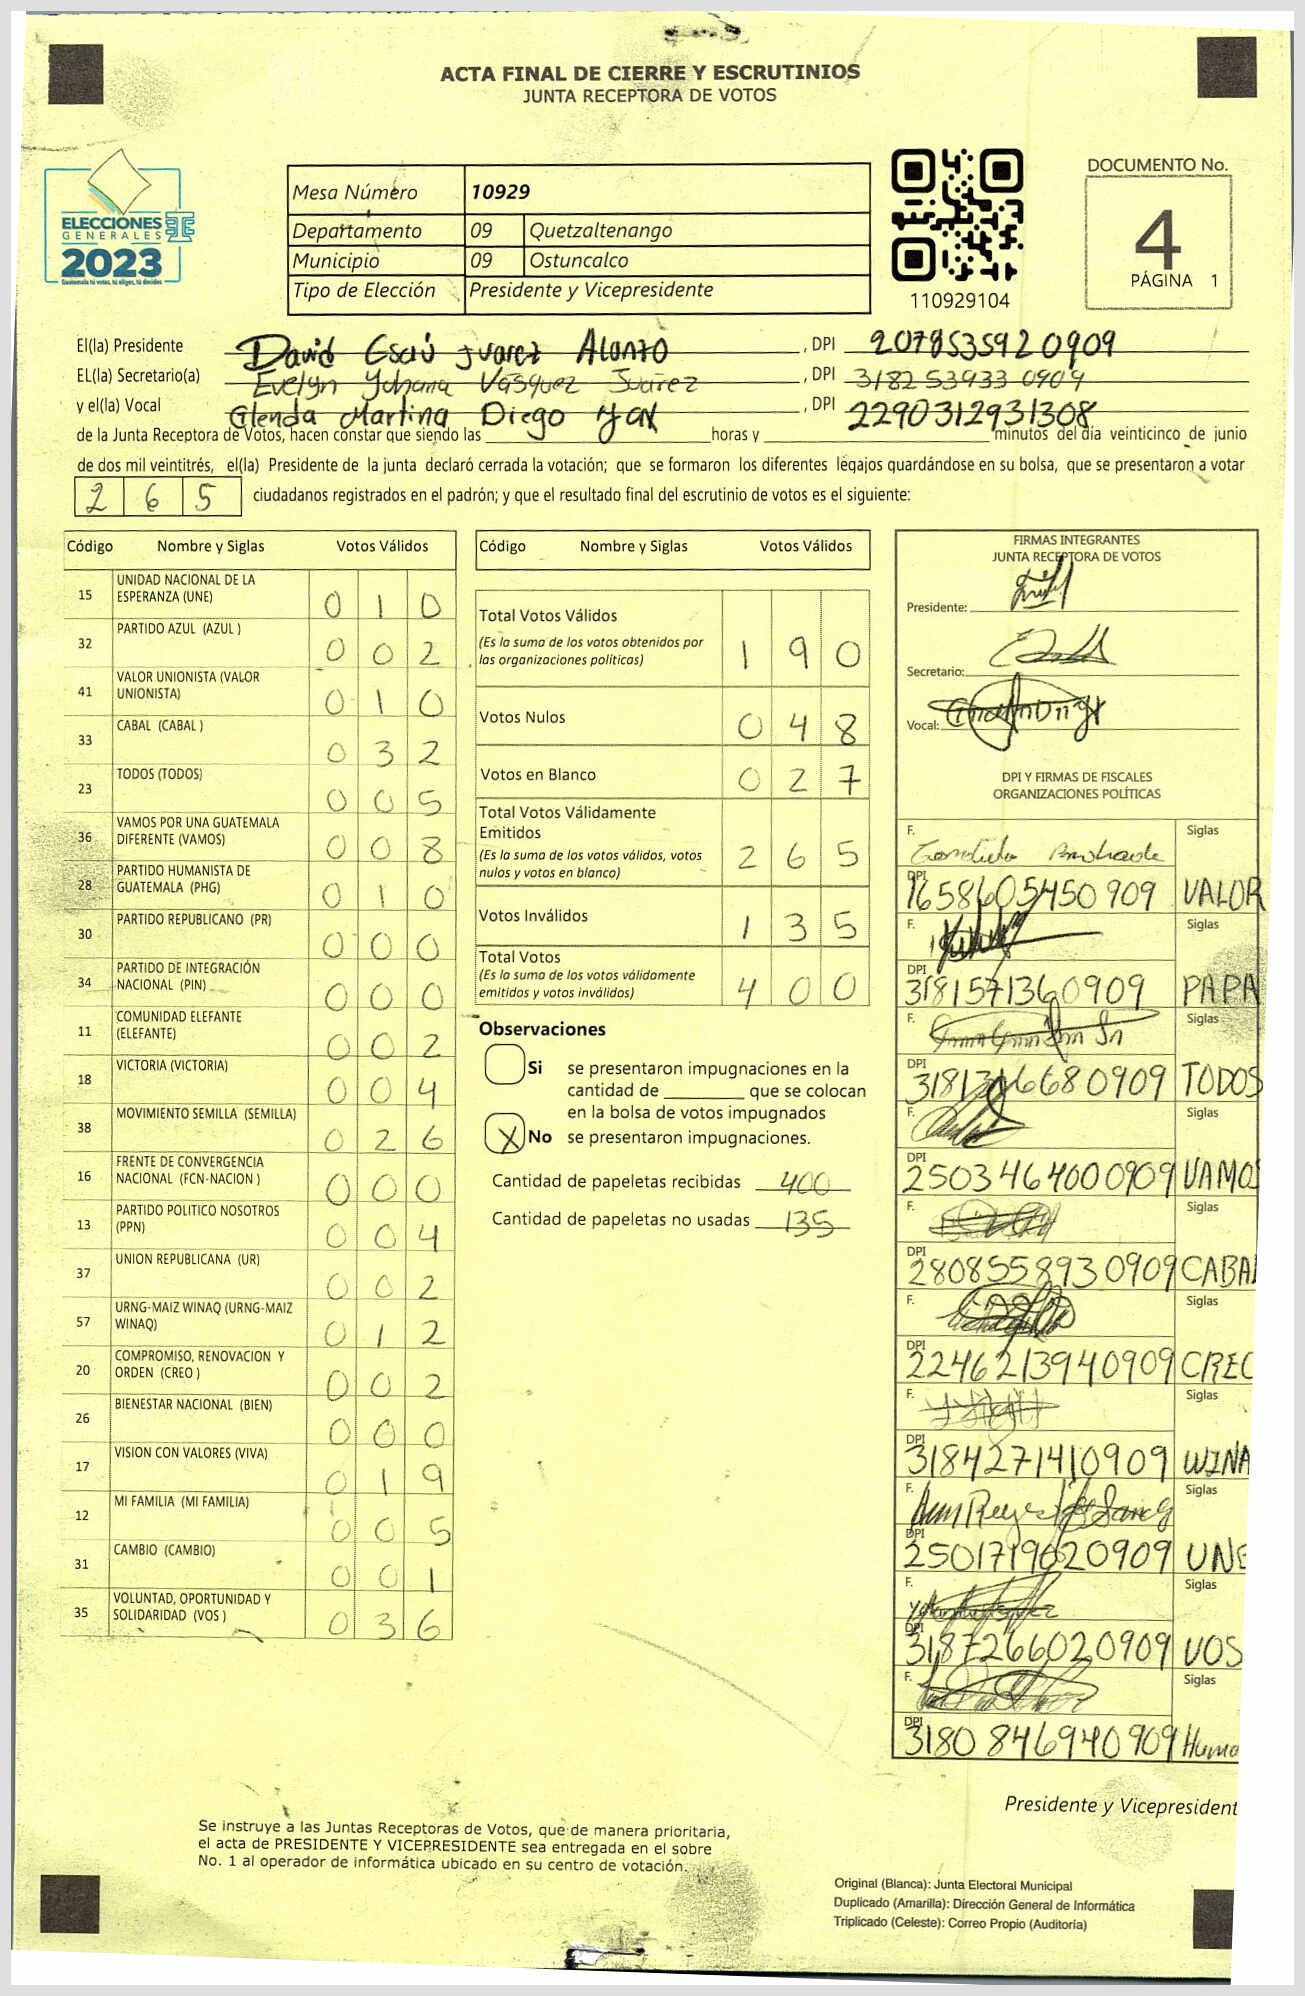 ACTA FINAL DE CIERRE Y ESCRUTINIOS
JUNTA RECEPTORA DE VOTOS
ELECCIONES
GENERALES
2023
Guatemala tú votas, tú eliges, tú decides
Mesa Número 10929
Departamento 09 Quetzaltenango
Municipio 09 Ostuncalco
Tipo de Elección Presidente y Vicepresidente
110929104
DOCUMENTO No.
4
PÁGINA 1
El(la) Presidente David Esaú Juarez Alonzo , DPI 2078535920909
EL(la) Secretario(a) Evelyn Yohana Vásquez Juárez , DPI 318253933 0909
y el(la) Vocal Glenda Martina Diego , DPI 2290312931308
de la Junta Receptora de Votos, hacen constar que siendo las horas y minutos del día veinticinco de junio
de dos mil veintitrés, el(la) Presidente de la junta declaró cerrada la votación; que se formaron los diferentes legajos guardándose en su bolsa, que se presentaron a votar
2 6 5 ciudadanos registrados en el padrón; y que el resultado final del escrutinio de votos es el siguiente:
Código Nombre y Siglas Votos Válidos
15 UNIDAD NACIONAL DE LA ESPERANZA (UNE) 0 1 0
32 PARTIDO AZUL (AZUL ) 0 0 2
41 VALOR UNIONISTA (VALOR UNIONISTA) 0 1 0
33 CABAL (CABAL ) 0 3 2
23 TODOS (TODOS) 0 0 5
36 VAMOS POR UNA GUATEMALA DIFERENTE (VAMOS) 0 0 8
28 PARTIDO HUMANISTA DE GUATEMALA (PHG) 0 1 0
30 PARTIDO REPUBLICANO (PR) 0 0 0
34 PARTIDO DE INTEGRACIÓN NACIONAL (PIN) 0 0 0
11 COMUNIDAD ELEFANTE (ELEFANTE) 0 0 2
18 VICTORIA (VICTORIA) 0 0 4
38 MOVIMIENTO SEMILLA (SEMILLA) 0 2 6
16 FRENTE DE CONVERGENCIA NACIONAL (FCN-NACION ) 0 0 0
13 PARTIDO POLITICO NOSOTROS (PPN) 0 0 4
37 UNION REPUBLICANA (UR) 0 0 2
57 URNG-MAIZ WINAQ (URNG-MAIZ WINAQ) 0 1 2
20 COMPROMISO, RENOVACION Y ORDEN (CREO ) 0 0 2
26 BIENESTAR NACIONAL (BIEN) 0 0 0
17 VISION CON VALORES (VIVA) 0 1 9
12 MI FAMILIA (MI FAMILIA) 0 0 5
31 CAMBIO (CAMBIO) 0 0 1
35 VOLUNTAD, OPORTUNIDAD Y SOLIDARIDAD (VOS ) 0 3 6
Código Nombre y Siglas Votos Válidos
Total Votos Válidos 1 9 0
(Es la suma de los votos obtenidos por
las organizaciones politicas)
Votos Nulos 0 4 8
Votos en Blanco 0 2 7
Total Votos Válidamente
Emitidos 2 6 5
(Es la suma de los votos válidos, votos
nulos y votos en blanco)
Votos Inválidos 1 3 5
Total Votos 4 0 0
(Es la suma de los votos válidamente
emitidos y votos inválidos)
Observaciones
Si se presentaron impugnaciones en la
cantidad de que se colocan
en la bolsa de votos impugnados
X No se presentaron impugnaciones.
Cantidad de papeletas recibidas 400
Cantidad de papeletas no usadas 135
FIRMAS INTEGRANTES
JUNTA RECEPTORA DE VOTOS
Presidente:
Secretario:
Vocal:
DPI Y FIRMAS DE FISCALES
ORGANIZACIONES POLÍTICAS
F. Siglas
DPI 1658605450909 VALOR
F. Siglas
DPI 3181571360909 PAPA
F. Siglas
DPI 3181316680909 TODOS
F. Siglas
DPI 2503464000909 VAMOS
F. Siglas
DPI 2808558930909 CABAL
F. Siglas
DPI 2246213940909 CREO
F. Siglas
DPI 3184271410909 WINA
F. Siglas
DPI 2501719620909 UNE
F. Siglas
DPI 3187266020909 VOS
F. Siglas
DPI 3180846940909 Huma
Presidente y Vicepresident
Se instruye a las Juntas Receptoras de Votos, que de manera prioritaria,
el acta de PRESIDENTE Y VICEPRESIDENTE sea entregada en el sobre
No. 1 al operador de informática ubicado en su centro de votación.
Original (Blanca): Junta Electoral Municipal
Duplicado (Amarilla): Dirección General de Informática
Triplicado (Celeste): Correo Propio (Auditoría)